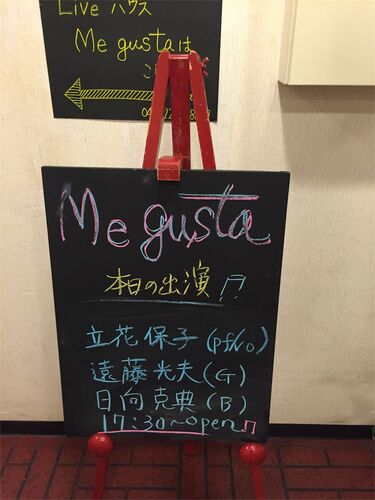 Live ハウス
Me gustaは
Me gusta
本日の出演
立花 保子 (pf/vo)
遠藤 光夫 (G)
日向 克典 (B)
17:30~open